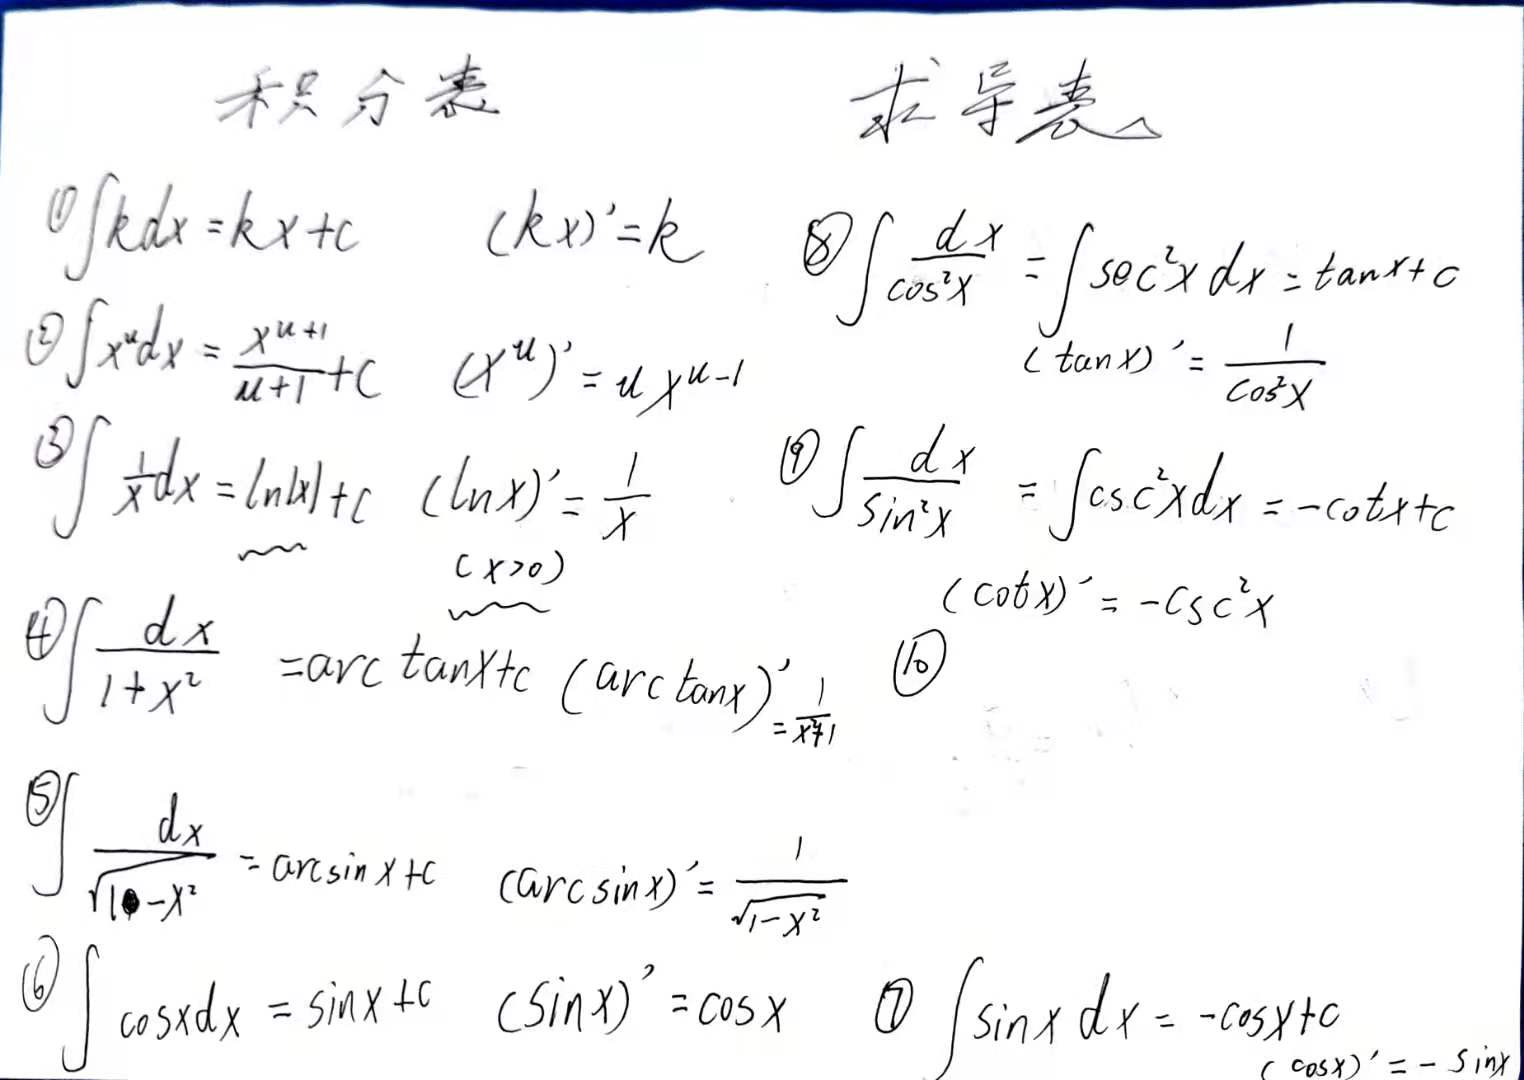 积分表 求导表
① ∫kdx=kx+c (kx)'=k
② ∫x^u dx = x^(u+1)/(u+1) +C (x^u)' = u x^(u-1)
③ ∫ 1/x dx = ln|x|+C (lnx)' = 1/x
(x>0)
④ ∫ dx/(1+x²) = arc tanx+c (arc tanx)' = 1/(x²+1)
⑤ ∫ dx/√(1-x²) = arcsin x+c (arcsin x)' = 1/√(1-x²)
⑥ ∫ cosxdx = sinx+c (sinx)' = cosx
⑦ ∫sinx dx = -cosx+c
(cosx)' = - sinx
⑧ ∫ dx/cos²x = ∫sec²x dx = tanx+c
(tanx)' = 1/cos²x
⑨ ∫ dx/sin²x = ∫csc²xdx = -cotx+c
(cotx)' = -csc²x
⑩